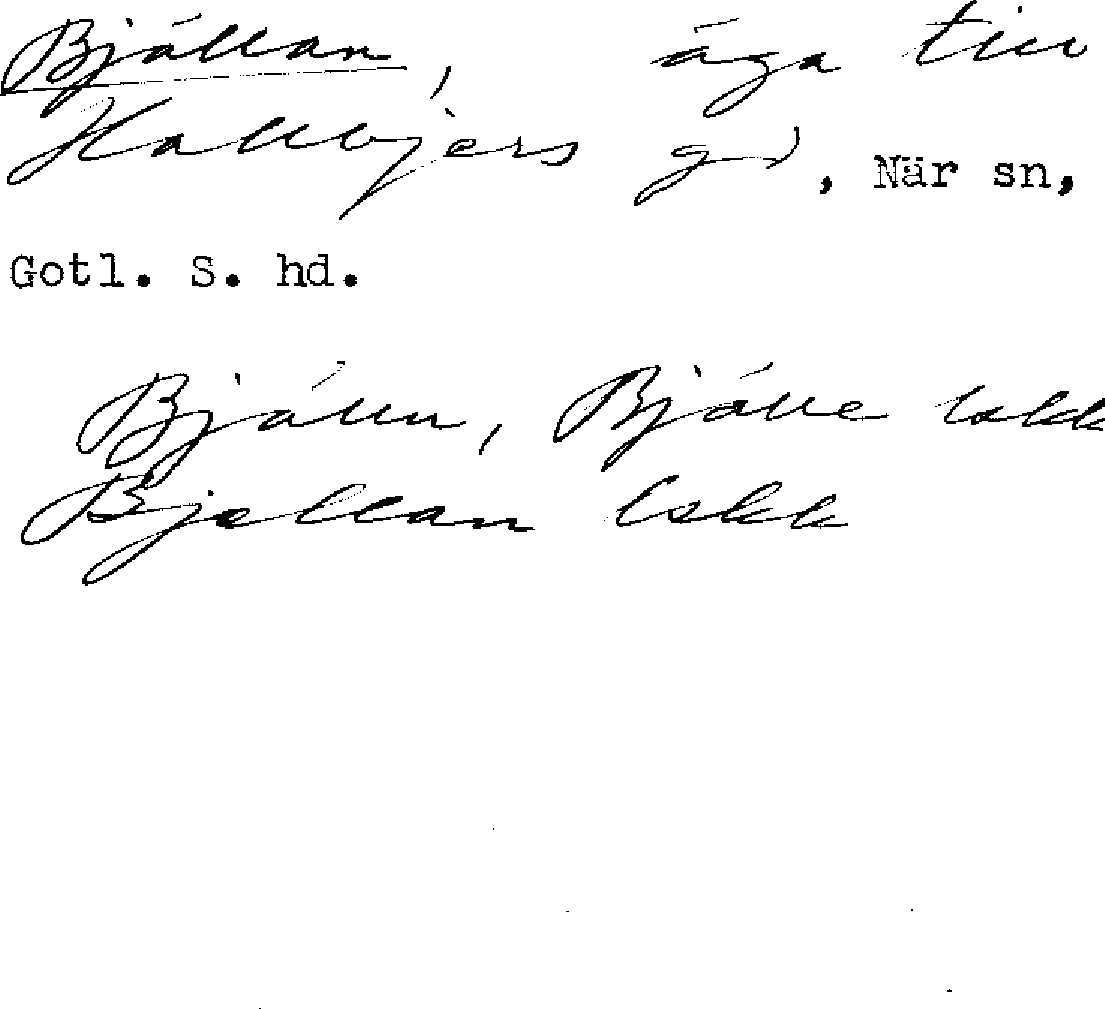 Bjällan, äga till
Hallbjers gd, När sn,
Gotl. S. hd.
Bjälln, Bjälle lskk
Bjellan lskk